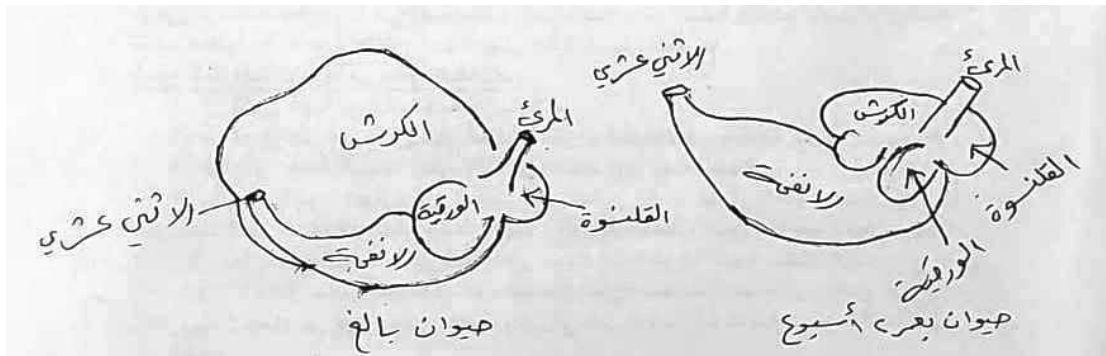 الاثني عشري
المرئ
الكرش
القلنسوة
الانفحة
الورقية
حيوان بعمر أسبوع
الكرش
المرئ
الورقية
القلنسوة
الاثني عشري
الانفحة
حيوان بالغ